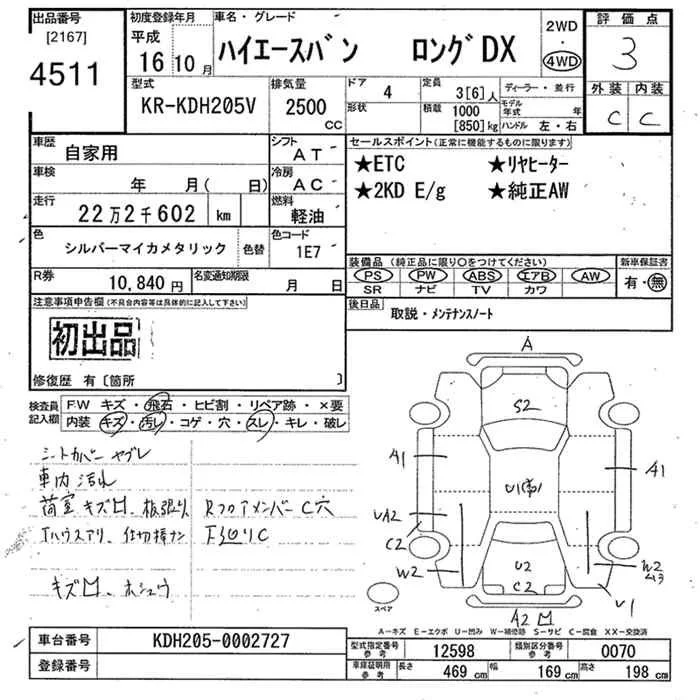 出品番号 [2167] 4511
初度登録年月 平成 16年 10月
車名・グレード ハイエースバン ロングDX
2WD・4WD
評価点 3
外装 C 内装 C
型式 KR-KDH205V
排気量 2500 CC
ドア 4
形状
定員 3[6]人
積載 1000 [850]kg
ディーラー・並行
モデル年式 年
ハンドル 左・右
車歴 自家用
シフト AT
車検 年 月( 日)
冷房 AC
走行 22万2千602 km
燃料 軽油
色 シルバーマイカメタリック 色替
色コード 1E7
R券 10,840円
名変通知期限 月 日
セールスポイント(正常に機能するものに限ります)
★ETC ★リヤヒーター
★2KD E/g ★純正AW
装備品 (純正品に限り○をつけてください)
PS PW ABS エアB AW
SR ナビ TV カワ
新車保証書 有・無
後日品 取説・メンテナンスノート
注意事項申告欄 (不具合内容等は具体的に記入して下さい)
初出品
修復歴 有〔箇所 〕
検査員記入欄
FW キズ・飛石・ヒビ割・リペア跡・×要
内装 キズ・汚レ・コゲ・穴・スレ・キレ・破レ
シートカバー ヤブレ
車内 汚れ
荷室 キズ凹、板張り RフロアメンバーC穴
仕切棒ナシ 下廻りC
キズ凹、ホシュウ
A
S2
A1
A1
U1
UA2
C2
W2
U2
C2
W2
U1
A2凹
スペア
A−キズ E−エクボ U−凹み W−補修跡 S−サビ C−腐食 XX−交換済
車台番号 KDH205-0002727
登録番号
型式指定番号 参考 12598
類別区分番号 参考 0070
車庫証明用 参考 長さ 469 cm 幅 169 cm 高さ 198 cm